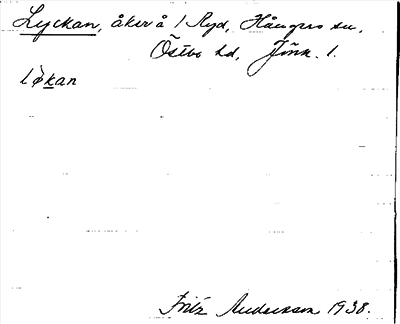 Lyckan, åker å 1 Ryd, Hångers sn,
Östbo hd, Jönk. l.
lø̀kan
Fritz Andersson 1938.